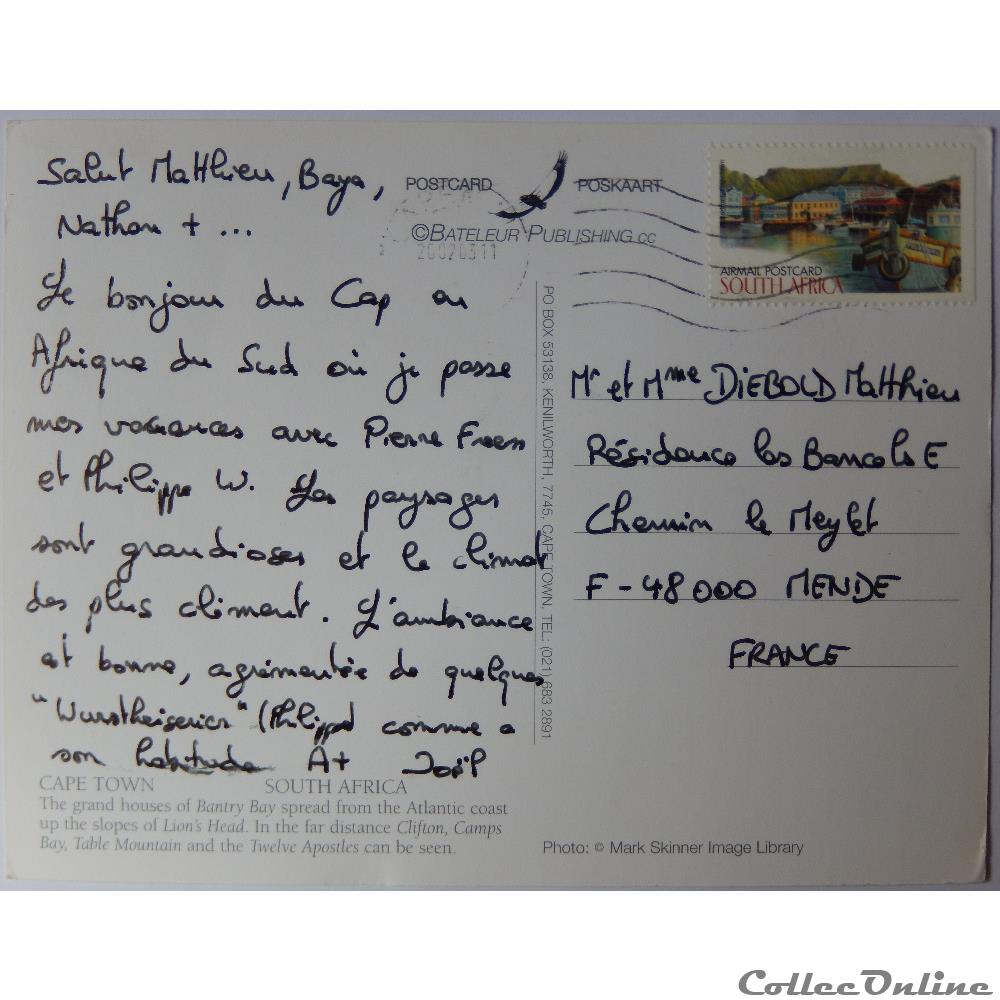 Salut Matthieu, Baya,
Nathan + ...
Le bonjour du Cap en
Afrique du Sud où je passe
mes vacances avec Pierre
et Philippe W. Les paysages
sont grandioses et le climat
des plus clément. L'ambiance
est bonne, agrémentée de quelques
"Wurstheiserien" (Philippe) comme a
son habitude A+ Joël
CAPE TOWN SOUTH AFRICA
The grand houses of Bantry Bay spread from the Atlantic coast
up the slopes of Lion's Head. In the far distance Clifton, Camps
Bay, Table Mountain and the Twelve Apostles can be seen.
POSTCARD POSKAART
©BATELEUR PUBLISHING CC
20020311
PO BOX 53138, KENILWORTH, 7745, CAPE TOWN, TEL: (021) 683 2891
AIRMAIL POSTCARD
SOUTH AFRICA
Mr et Mme DIEBOLD Matthieu
Résidence les Bancels E
Chemin le Meylet
F - 48 000 MENDE
FRANCE
Photo: © Mark Skinner Image Library
CollecOnline